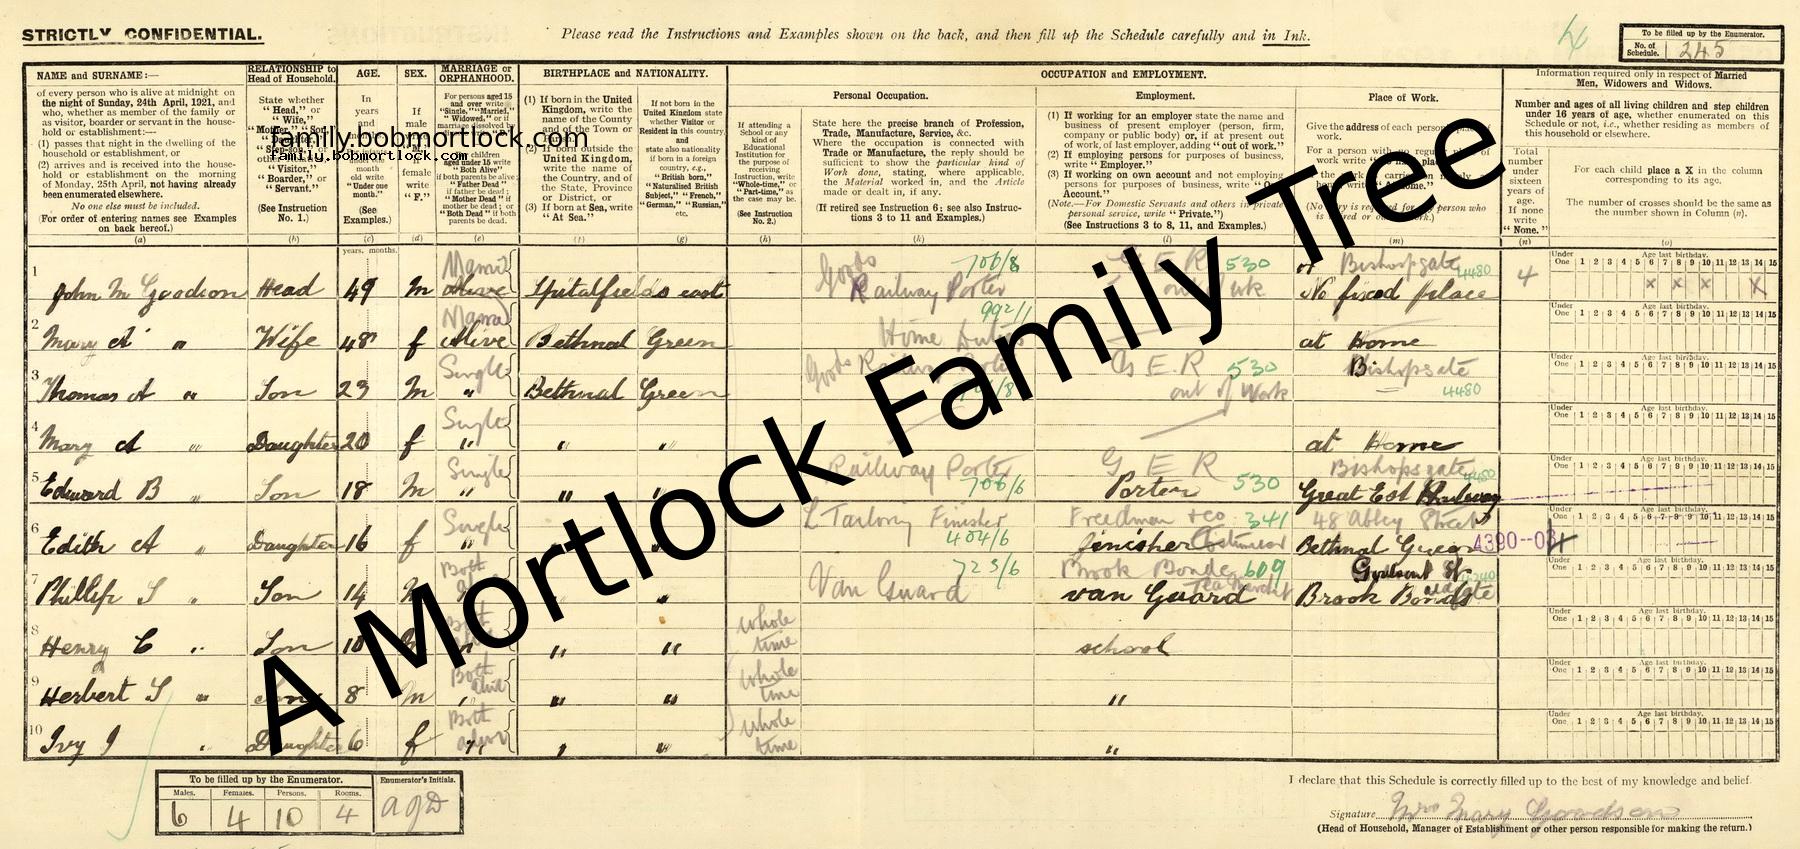 STRICTLY CONFIDENTIAL.
Please read the Instructions and Examples shown on the back, and then fill up the Schedule carefully and in Ink.
To be filled up by the Enumerator.
No. of Schedule. 245
NAME and SURNAME:—
of every person who is alive at midnight on the night of Sunday, 24th April, 1921, and who, whether as member of the family or as visitor, boarder or servant in the household or establishment:—
(1) passes that night in the dwelling of the household or establishment, or
(2) arrives and is received into the household or establishment on the morning of Monday, 25th April, not having already been enumerated elsewhere.
No one else must be included.
(For order of entering names see Examples on back hereof.)
(a)
RELATIONSHIP to Head of Household.
State whether "Head," or "Wife,"
Visitor, "Boarder," or "Servant."
(See Instruction No. 1.)
(b)
AGE.
In years and
(See Examples.)
(c)
SEX.
If male
female write "F."
(d)
MARRIAGE or ORPHANHOOD.
For persons aged 15 and over write "Single," "Married,"
(e)
BIRTHPLACE and NATIONALITY.
(1) If born in the United Kingdom, write the name of the County and of the Town or
(2) If born outside the United Kingdom, write the name of the Country, and of the State, Province or District, or
(3) If born at Sea, write "At Sea."
(f)
If not born in the United Kingdom state whether Visitor or Resident in this country, and
state also nationality if born in a foreign country, e.g., "British born," "Naturalised British Subject," "French," "German," "Russian," etc.
(g)
OCCUPATION and EMPLOYMENT.
If attending a School or any kind of Educational Institution for the purpose of receiving Instruction, write "Whole-time," or "Part-time," as the case may be.
(See Instruction No. 2.)
(h)
Personal Occupation.
State here the precise branch of Profession, Trade, Manufacture, Service, &c.
Where the occupation is connected with Trade or Manufacture, the reply should be sufficient to show the particular kind of Work done, stating, where applicable, the Material worked in, and the Article made or dealt in, if any.
(If retired see Instruction 6; see also Instructions 3 to 11 and Examples.)
(k)
Employment.
(1) If working for an employer state the name and business of present employer (person, firm, company or public body) or, if at present out of work, of last employer, adding "out of work."
(2) If employing persons for purposes of business, write "Employer."
(3) If working on own account and not employing persons for purposes of business, write "Own Account."
(Note.—For Domestic Servants and others in private personal service, write "Private.")
(See Instructions 3 to 8, 11, and Examples.)
(l)
Place of Work.
Give the address of each person's place of work.
For a person with no regular place of work write "No fixed place."
(m)
Information required only in respect of Married Men, Widowers and Widows.
Number and ages of all living children and step children under 16 years of age, whether enumerated on this Schedule or not, i.e., whether residing as members of this household or elsewhere.
Total number under sixteen years of age.
If none write "None."
(n)
For each child place a X in the column corresponding to its age.
The number of crosses should be the same as the number shown in Column (n).
(o)
family.bobmortlock.com
family.bobmortlock.com
A Mortlock Family Tree
years. months.
1 John M Goodson Head 49 M Married Alive Spitalfields east Goods Railway Porter 706/8 G E R 530 out of work or Bishopsgate 4480 No fixed place 4
2 Mary A " Wife 48 f Married Alive Bethnal Green Home Duties 992/1 at Home
3 Thomas A " Son 23 M Single " Bethnal Green Goods Railway Porter G E R 530 out of Work Bishopsgate 4480
4 Mary A " Daughter 20 f Single " " " at Home
5 Edward B " Son 18 M Single " " " Railway Porter 706/6 G E R Porter 530 Bishopsgate 4480 Great Est Railway
6 Edith A " Daughter 16 f Single " Tailory Finisher 404/6 Freedman & co 341 finisher Costumier 48 Abbey Street Bethnal Green 4390--03
7 Phillip S " Son 14 Both " Van Guard 723/6 Brook Bonds 609 van Guard Goulson St Brook Bonds
8 Henry C " Son 10 " " whole time school
9 Herbert S " Son 8 M Both alive " " whole time "
10 Ivy I " Daughter 6 f Both alive " " whole time "
Under One 1 2 3 4 5 6 7 8 9 10 11 12 13 14 15
Age last birthday.
To be filled up by the Enumerator.
Males. Females. Persons. Rooms.
6 4 10 4
Enumerator's Initials.
I declare that this Schedule is correctly filled up to the best of my knowledge and belief.
Signature Mrs Mary Goodson
(Head of Household, Manager of Establishment or other person responsible for making the return.)